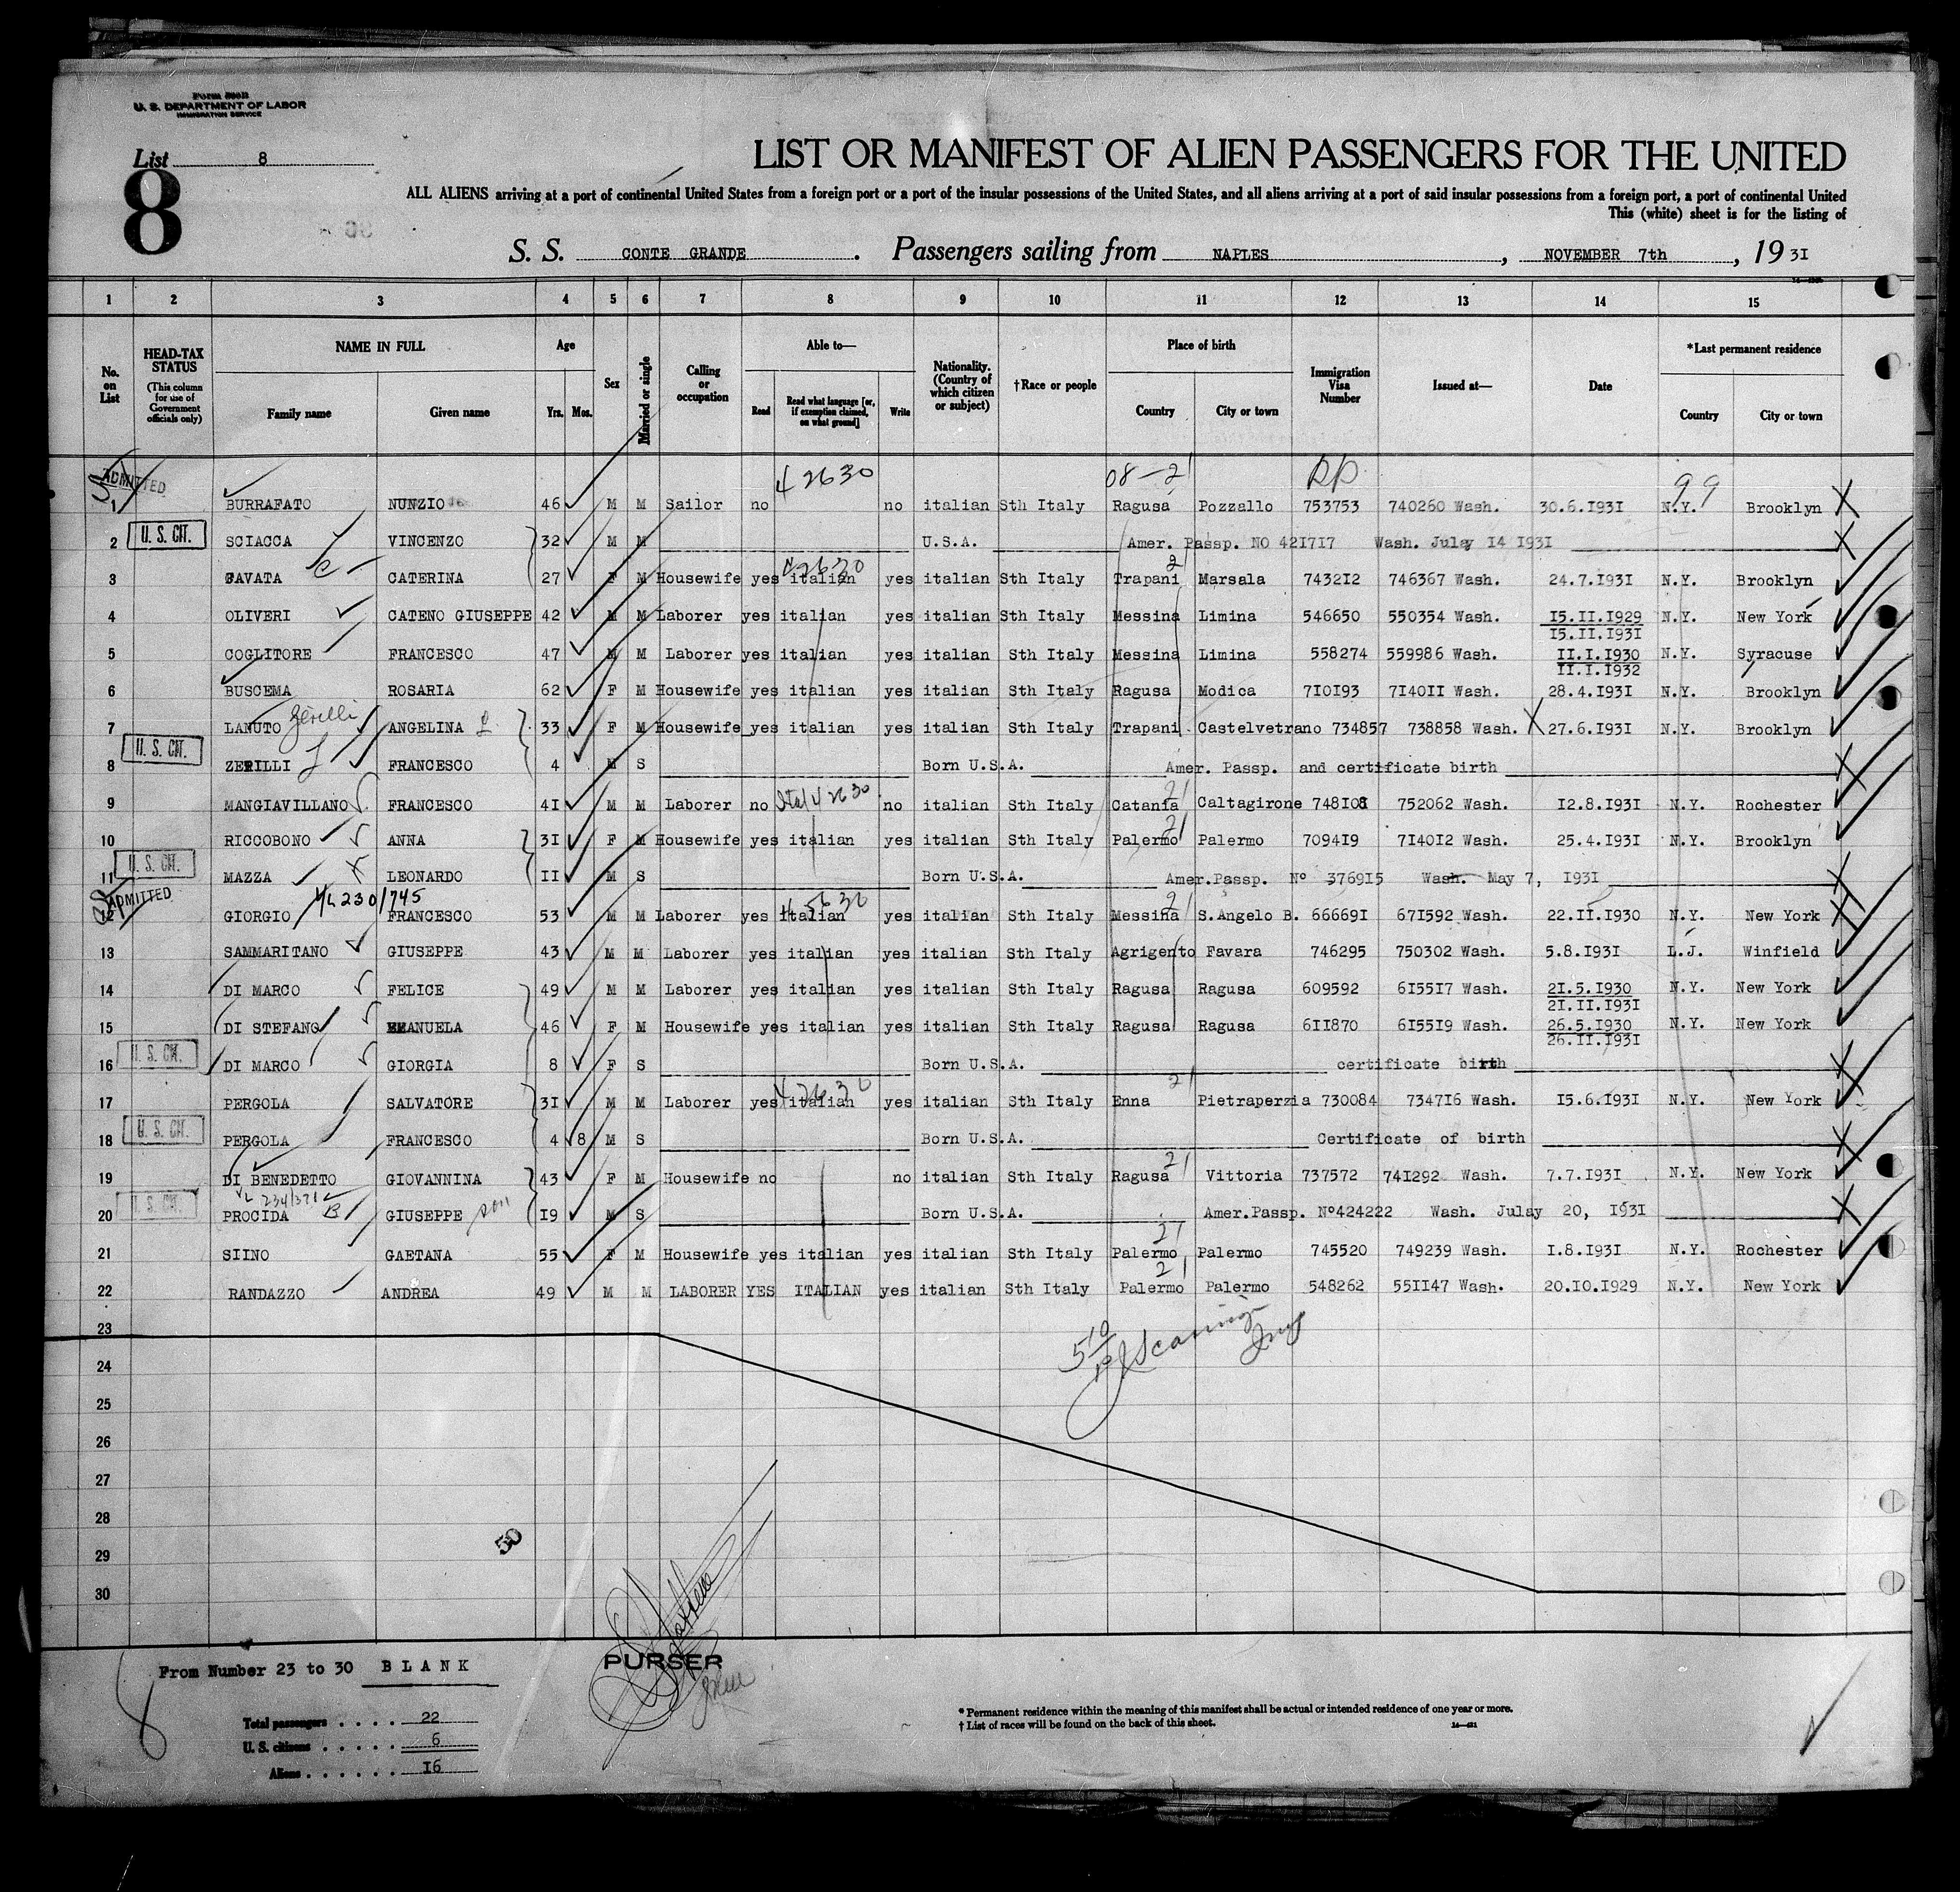 Form 500B
U. S. DEPARTMENT OF LABOR
IMMIGRATION SERVICE
List 8
8
LIST OR MANIFEST OF ALIEN PASSENGERS FOR THE UNITED
ALL ALIENS arriving at a port of continental United States from a foreign port or a port of the insular possessions of the United States, and all aliens arriving at a port of said insular possessions from a foreign port, a port of continental United
This (white) sheet is for the listing of
S. S. CONTE GRANDE. Passengers sailing from NAPLES, NOVEMBER 7th, 1931
1 2 3 4 5 6 7 8 9 10 11 12 13 14 15
No. on List
HEAD-TAX STATUS (This column for use of Government officials only)
NAME IN FULL
Family name Given name
Age
Yrs. Mos.
Sex
Married or single
Calling or occupation
Able to—
Read Read what language [or, if exemption claimed, on what ground] Write
Nationality. (Country of which citizen or subject)
†Race or people
Place of birth
Country City or town
Immigration Visa Number
Issued at—
Date
*Last permanent residence
Country City or town
ADMITTED 4 2630 08-21 99
1 BURRAFATO NUNZIO 46 M M Sailor no no italian Sth Italy Ragusa Pozzallo 753753 740260 Wash. 30.6.I93I N.Y. Brooklyn
2 U. S. CIT. SCIACCA VINCENZO 32 M M U.S.A. Amer. Passp. NO 42I7I7 Wash. Julay I4 I93I
4 2630 21
3 FAVATA CATERINA 27 F M Housewife yes italian yes italian Sth Italy Trapani Marsala 7432I2 746367 Wash. 24.7.I93I N.Y. Brooklyn
4 OLIVERI CATENO GIUSEPPE 42 M M Laborer yes italian yes italian Sth Italy Messina Limina 546650 550354 Wash. I5.II.I929 N.Y. New York
I5.II.I93I
5 COGLITORE FRANCESCO 47 M M Laborer yes italian yes italian Sth Italy Messina Limina 558274 559986 Wash. II.I.I930 N.Y. Syracuse
II.I.I932
6 BUSCEMA ROSARIA 62 F M Housewife yes italian yes italian Sth Italy Ragusa Modica 7I0I93 7I40II Wash. 28.4.I93I N.Y. Brooklyn
7 LANUTO Zerilli ANGELINA 33 F M Housewife yes italian yes italian Sth Italy Trapani Castelvetrano 734857 738858 Wash. 27.6.I93I N.Y. Brooklyn
8 U. S. CIT. ZERILLI FRANCESCO 4 M S Born U.S.A. Amer. Passp. and certificate birth
9 MANGIAVILLANO FRANCESCO 4I M M Laborer no Ital 4 2630 no italian Sth Italy Catania 21 Caltagirone 748I08 752062 Wash. I2.8.I93I N.Y. Rochester
10 RICCOBONO ANNA 3I F M Housewife yes italian yes italian Sth Italy Palermo 21 Palermo 7094I9 7I40I2 Wash. 25.4.I93I N.Y. Brooklyn
11 U. S. CIT. MAZZA LEONARDO II M S Born U.S.A. Amer.Passp. Nº 3769I5 Wash. May 7, I93I
ADMITTED V/L 230/745
12 GIORGIO FRANCESCO 53 M M Laborer yes italian yes italian Sth Italy Messina 21 S.Angelo B. 66669I 67I592 Wash. 22.II.I930 N.Y. New York
13 SAMMARITANO GIUSEPPE 43 M M Laborer yes italian yes italian Sth Italy Agrigento Favara 746295 750302 Wash. 5.8.I93I L.J. Winfield
14 DI MARCO FELICE 49 M M Laborer yes italian yes italian Sth Italy Ragusa Ragusa 609592 6I55I7 Wash. 2I.5.I930 N.Y. New York
2I.II.I93I
15 DI STEFANO EMANUELA 46 F M Housewife yes italian yes italian Sth Italy Ragusa Ragusa 6II870 6I55I9 Wash. 26.5.I930 N.Y. New York
26.II.I93I
16 U. S. CIT. DI MARCO GIORGIA 8 F S Born U.S.A. certificate birth
4 2630 21
17 PERGOLA SALVATORE 3I M M Laborer yes italian yes italian Sth Italy Enna Pietraperzia 730084 7347I6 Wash. I5.6.I93I N.Y. New York
18 U. S. CIT. PERGOLA FRANCESCO 4 8 M S Born U.S.A. Certificate of birth
19 DI BENEDETTO GIOVANNINA 43 F M Housewife no no italian Sth Italy Ragusa 21 Vittoria 737572 74I292 Wash. 7.7.I93I N.Y. New York
234/371
20 U. S. CIT. PROCIDA GIUSEPPE son I9 M S Born U.S.A. Amer.Passp. Nº424222 Wash. Julay 20, I93I
21
21 SIINO GAETANA 55 F M Housewife yes italian yes italian Sth Italy Palermo Palermo 745520 749239 Wash. I.8.I93I N.Y. Rochester
21
22 RANDAZZO ANDREA 49 M M LABORER YES ITALIAN yes italian Sth Italy Palermo Palermo 548262 55II47 Wash. 20.I0.I929 N.Y. New York
23
24
25
26
27
28
29
30
50
PURSER
From Number 23 to 30 BLANK
Total passengers . . . . 22
U. S. citizens . . . . . 6
Aliens . . . . . . I6
* Permanent residence within the meaning of this manifest shall be actual or intended residence of one year or more.
† List of races will be found on the back of this sheet.